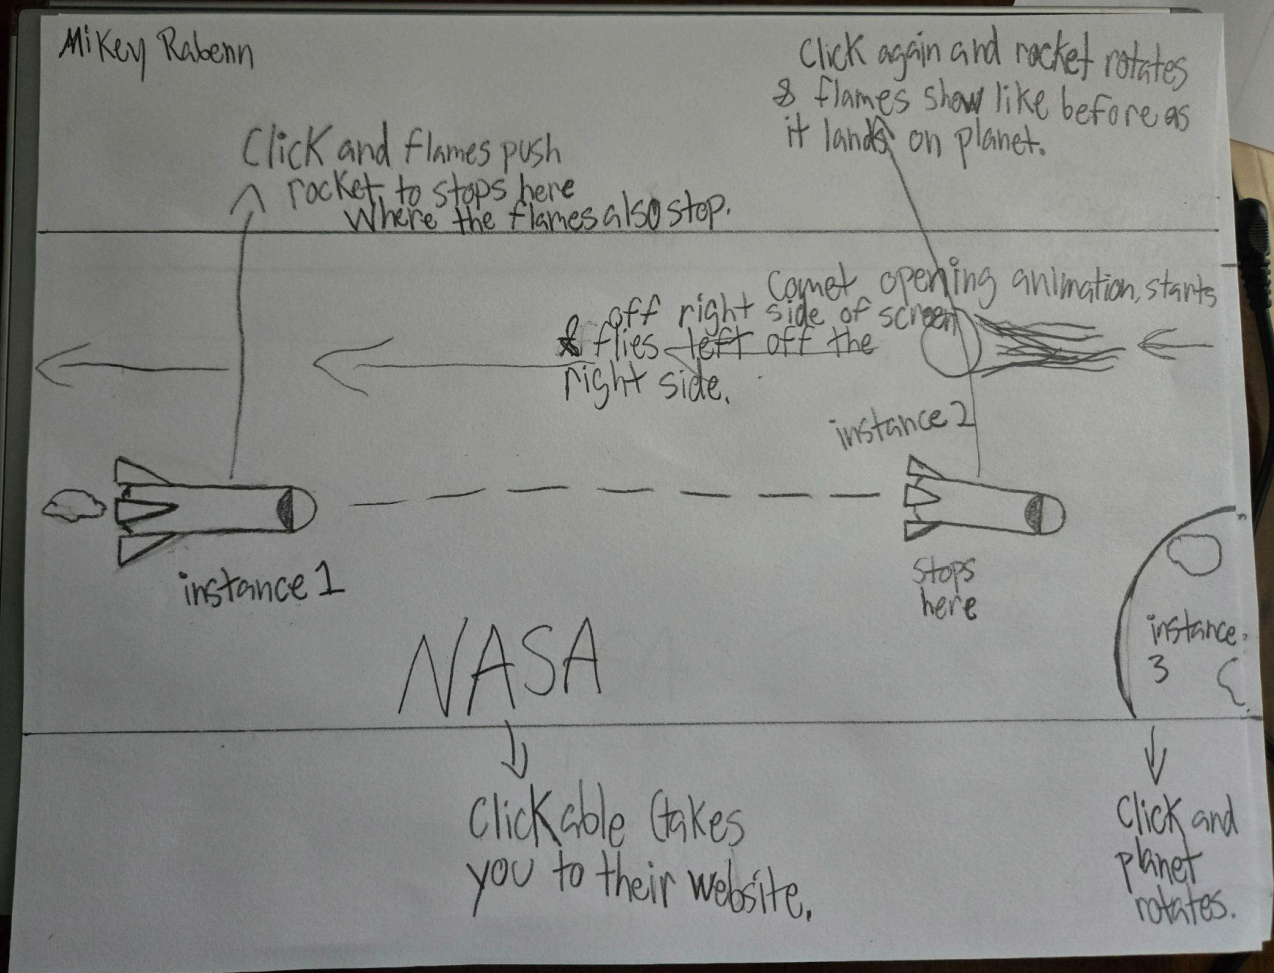 Mikey Rabenn
Click again and rocket rotates
& flames show like before as
it lands on planet.
Click and flames push
rocket to stops here
Where the flames also stop.
Comet opening animation, starts
off right side of screen
& flies left off the
right side.
instance 2
instance 1
stops
here
instance
3
NASA
Clickable (takes
you to their website.
Click and
planet
rotates.